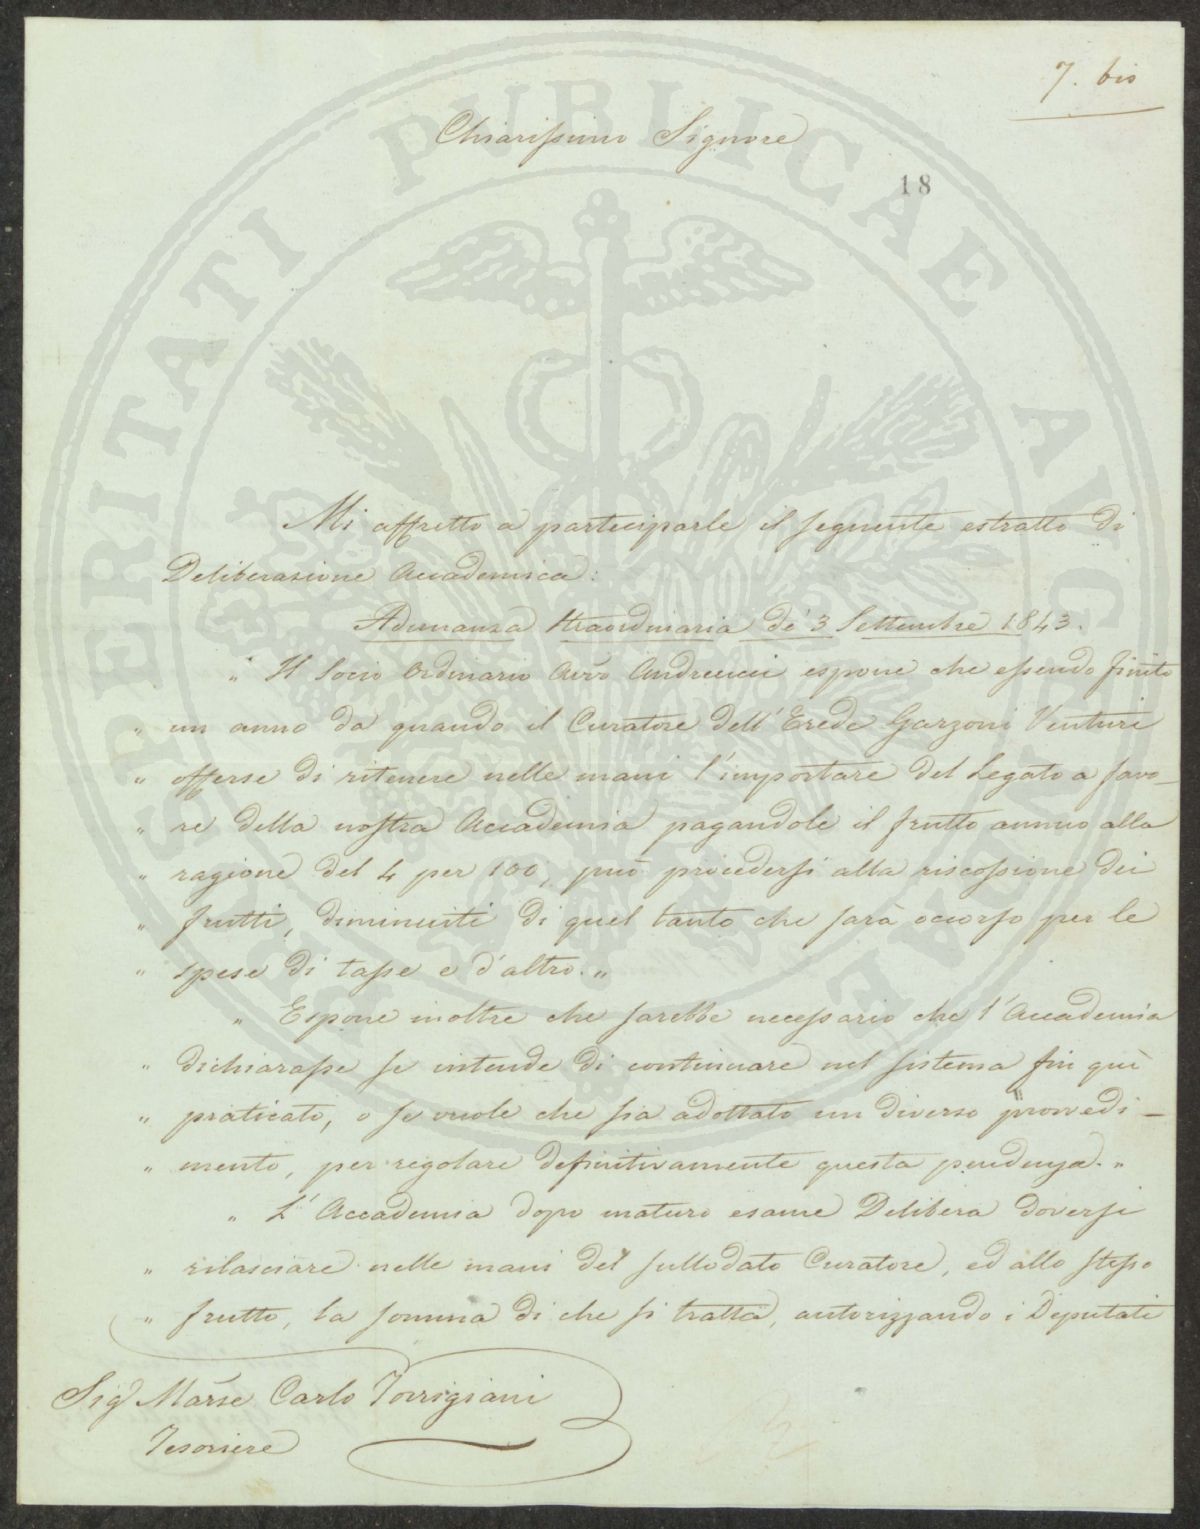 7. bis
Chiarissimo Signore
18
PROSPERITATI PUBLICAE AUGENDAE
Mi affretto a parteciparle il seguente estratto di
Deliberazione Accademica:
Adunanza Straordinaria de' 3 Settembre 1843.
„ Il Socio Ordinario Avv̄o Andreucci espone che essendo finito
„ un anno da quando il Curatore dell'Erede Garzoni Venturi
„ offerse di ritenere nelle mani l'importare del Legato a favo-
„ re della nostra Accademia pagandole il frutto annuo alla
„ ragione del 4 per 100, può procedersi alla riscossione dei
„ frutti, diminuiti di quel tanto che sarà occorso per le
„ spese di tasse e d'altro. „
„ Espone inoltre che sarebbe necessario che l'Accademia
„ dichiarasse se intende di continuare nel sistema fin quì
„ praticato, o se vuole che sia adottato un diverso provvedi-
„ mento, per regolare definitivamente questa pendenza. „
„ L'Accademia dopo maturo esame Delibera doversi
„ rilasciare nelle mani del sullodato Curatore, ed allo stesso
„ frutto, la somma di che si tratta, autorizzando i Deputati
Sig Marse Carlo Torrigiani
Tesoriere